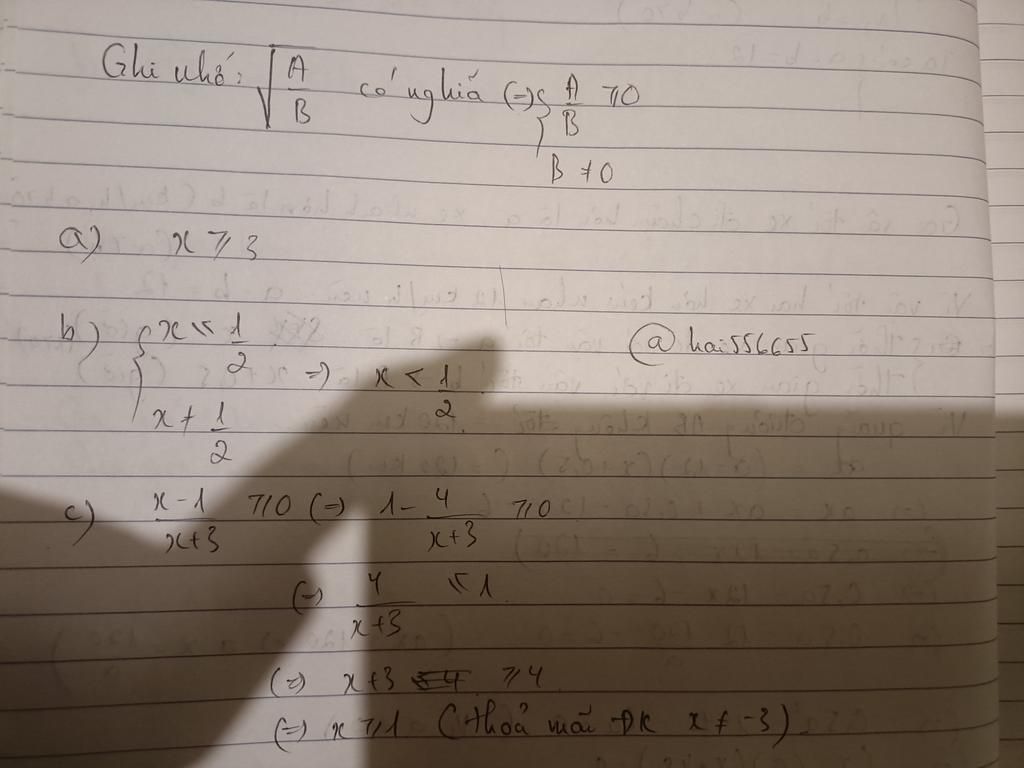 Ghi nhớ: √(A/B) có nghĩa (=) { A/B ≥ 0
B ≠ 0
a) x ≥ 3
b) { x ≤ 1/2
x ≠ 1/2 => x < 1/2
@hai556655
c) (x-1)/(x+3) ≥ 0 (=) 1 - 4/(x+3) ≥ 0
(=) 4/(x+3) ≤ 1
(=) x+3 ≥ 4
(=) x ≥ 1 (thoả mãi ĐK x ≠ -3)